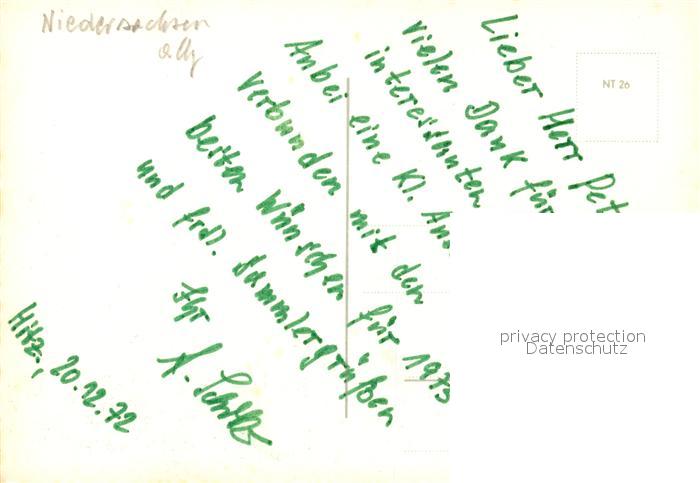 Niedersachsen
NT 26
Lieber Herr Pet
vielen Dank für
interessanten
Anbei eine kl. An
verbunden mit den
besten Wünschen für 1973
und frdl. Sammlergrüßen
Ihr
Hitz., 20.12.72
privacy protection
Datenschutz